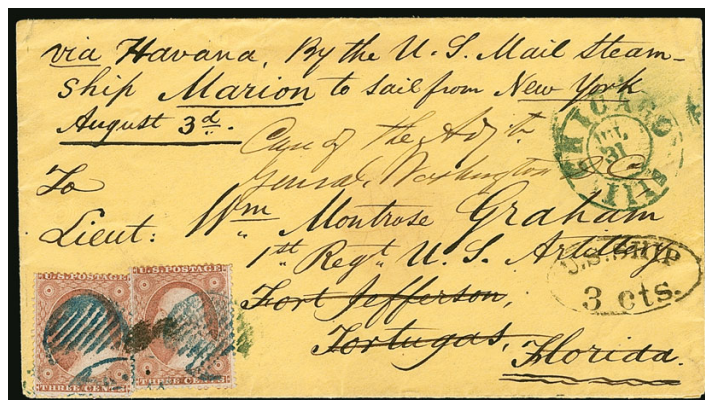 via Havana, By the U. S. Mail Steam-
ship Marion to sail from New York
August 3d.
Care of the Adjt.
General, Washington D.C.
To
Lieut: Wm Montrose Graham
1st Regt U. S. Artillery
Fort Jefferson,
Tortugas,
Florida.
CHICAGO
31
ILLS
U.S. SHIP
3 cts.
U.S. POSTAGE
THREE CENTS
U.S. POSTAGE
THREE CENTS